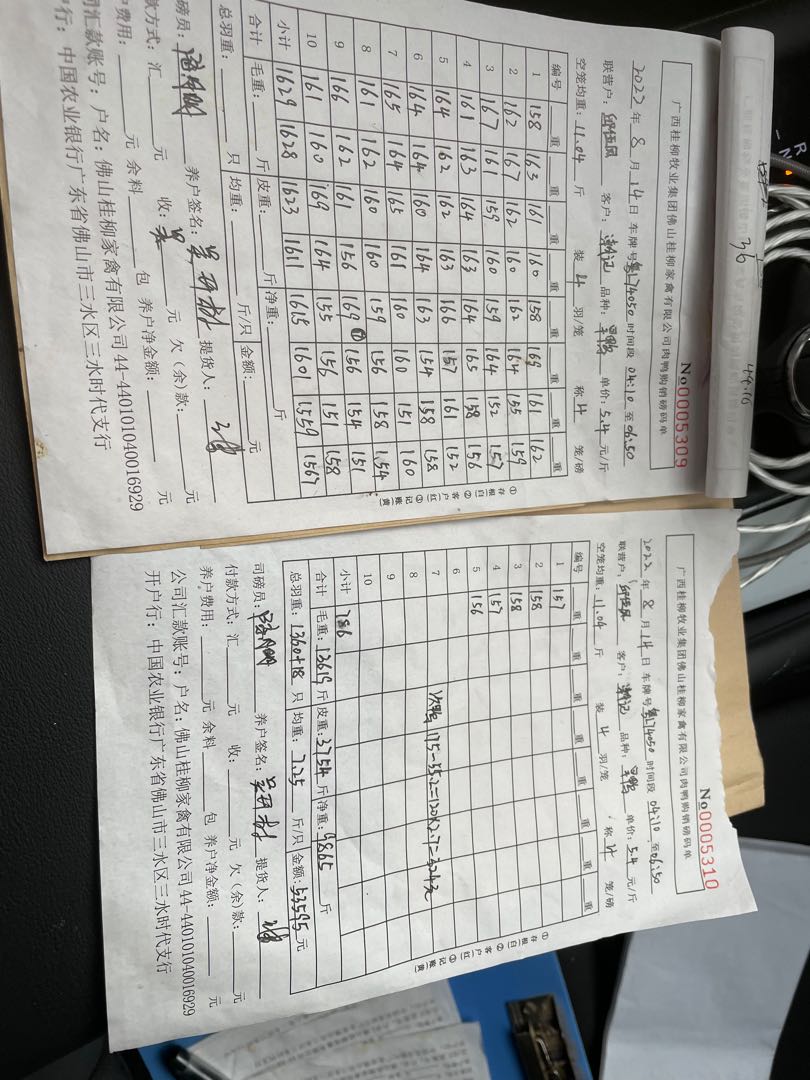 No0005309
广西桂柳牧业集团佛山桂柳家禽有限公司肉鸭购销磅码单
2022 年 8 月 14 日 车牌号粤L74050 时间段 04:10 至 06:50
联营户: 客户: 品种: 单价: 5.4 元/斤
空笼均重: 11.04 斤 装 4 羽/笼 称 笼/磅
编号 重 重 重 重 重 重 重 重
1 158 163 161 160 158 169 161 162
2 162 167 162 160 162 164 155 159
3 167 161 159 160 159 164 152 157
4 161 163 164 163 164 165 158 156
5 164 162 162 163 166 157 161 152
6 164 164 160 164 163 154 158 158
7 165 164 165 161 160 160 151 160
8 161 162 160 160 159 156 158 154
9 166 162 161 156 169 156 154 151
10 161 160 169 164 155 156 151 158
小计 1629 1628 1623 1611 1615 1601 1559 1567
合计 毛重: 斤 皮重: 斤 净重: 斤
总羽重: 只 均重: 斤/只 金额: 元
磅员: 养户签名: 提货人:
款方式: 汇 元 收: 元 欠(余)款: 元
户费用: 元 余料 包 养户净金额: 元
司汇款账号: 户名: 佛山桂柳家禽有限公司 44-440101040016929
行: 中国农业银行广东省佛山市三水区三水时代支行
①存根(白) ②客户(红) ③记账(黄)
No0005310
广西桂柳牧业集团佛山桂柳家禽有限公司肉鸭购销磅码单
2022 年 8 月 14 日 车牌号粤L74050 时间段 04:10 至 06:50
联营户: 客户: 品种: 单价: 5.4 元/斤
空笼均重: 11.04 斤 装 4 羽/笼 称 笼/磅
编号 重 重 重 重 重 重 重 重
1 157
2 158
3 158
4 157
5 156
6
7 175-55.2=120×2.7=324元
8
9
10
小计 786
合计 毛重: 13619 斤 皮重: 3754 斤 净重: 9865 斤
总羽重: 1360+18 只 均重: 7.25 斤/只 金额: 53595 元
司磅员: 养户签名: 提货人:
付款方式: 汇 元 收: 元 欠(余)款: 元
养户费用: 元 余料 包 养户净金额: 元
公司汇款账号: 户名: 佛山桂柳家禽有限公司 44-440101040016929
开户行: 中国农业银行广东省佛山市三水区三水时代支行
①存根(白) ②客户(红) ③记账(黄)